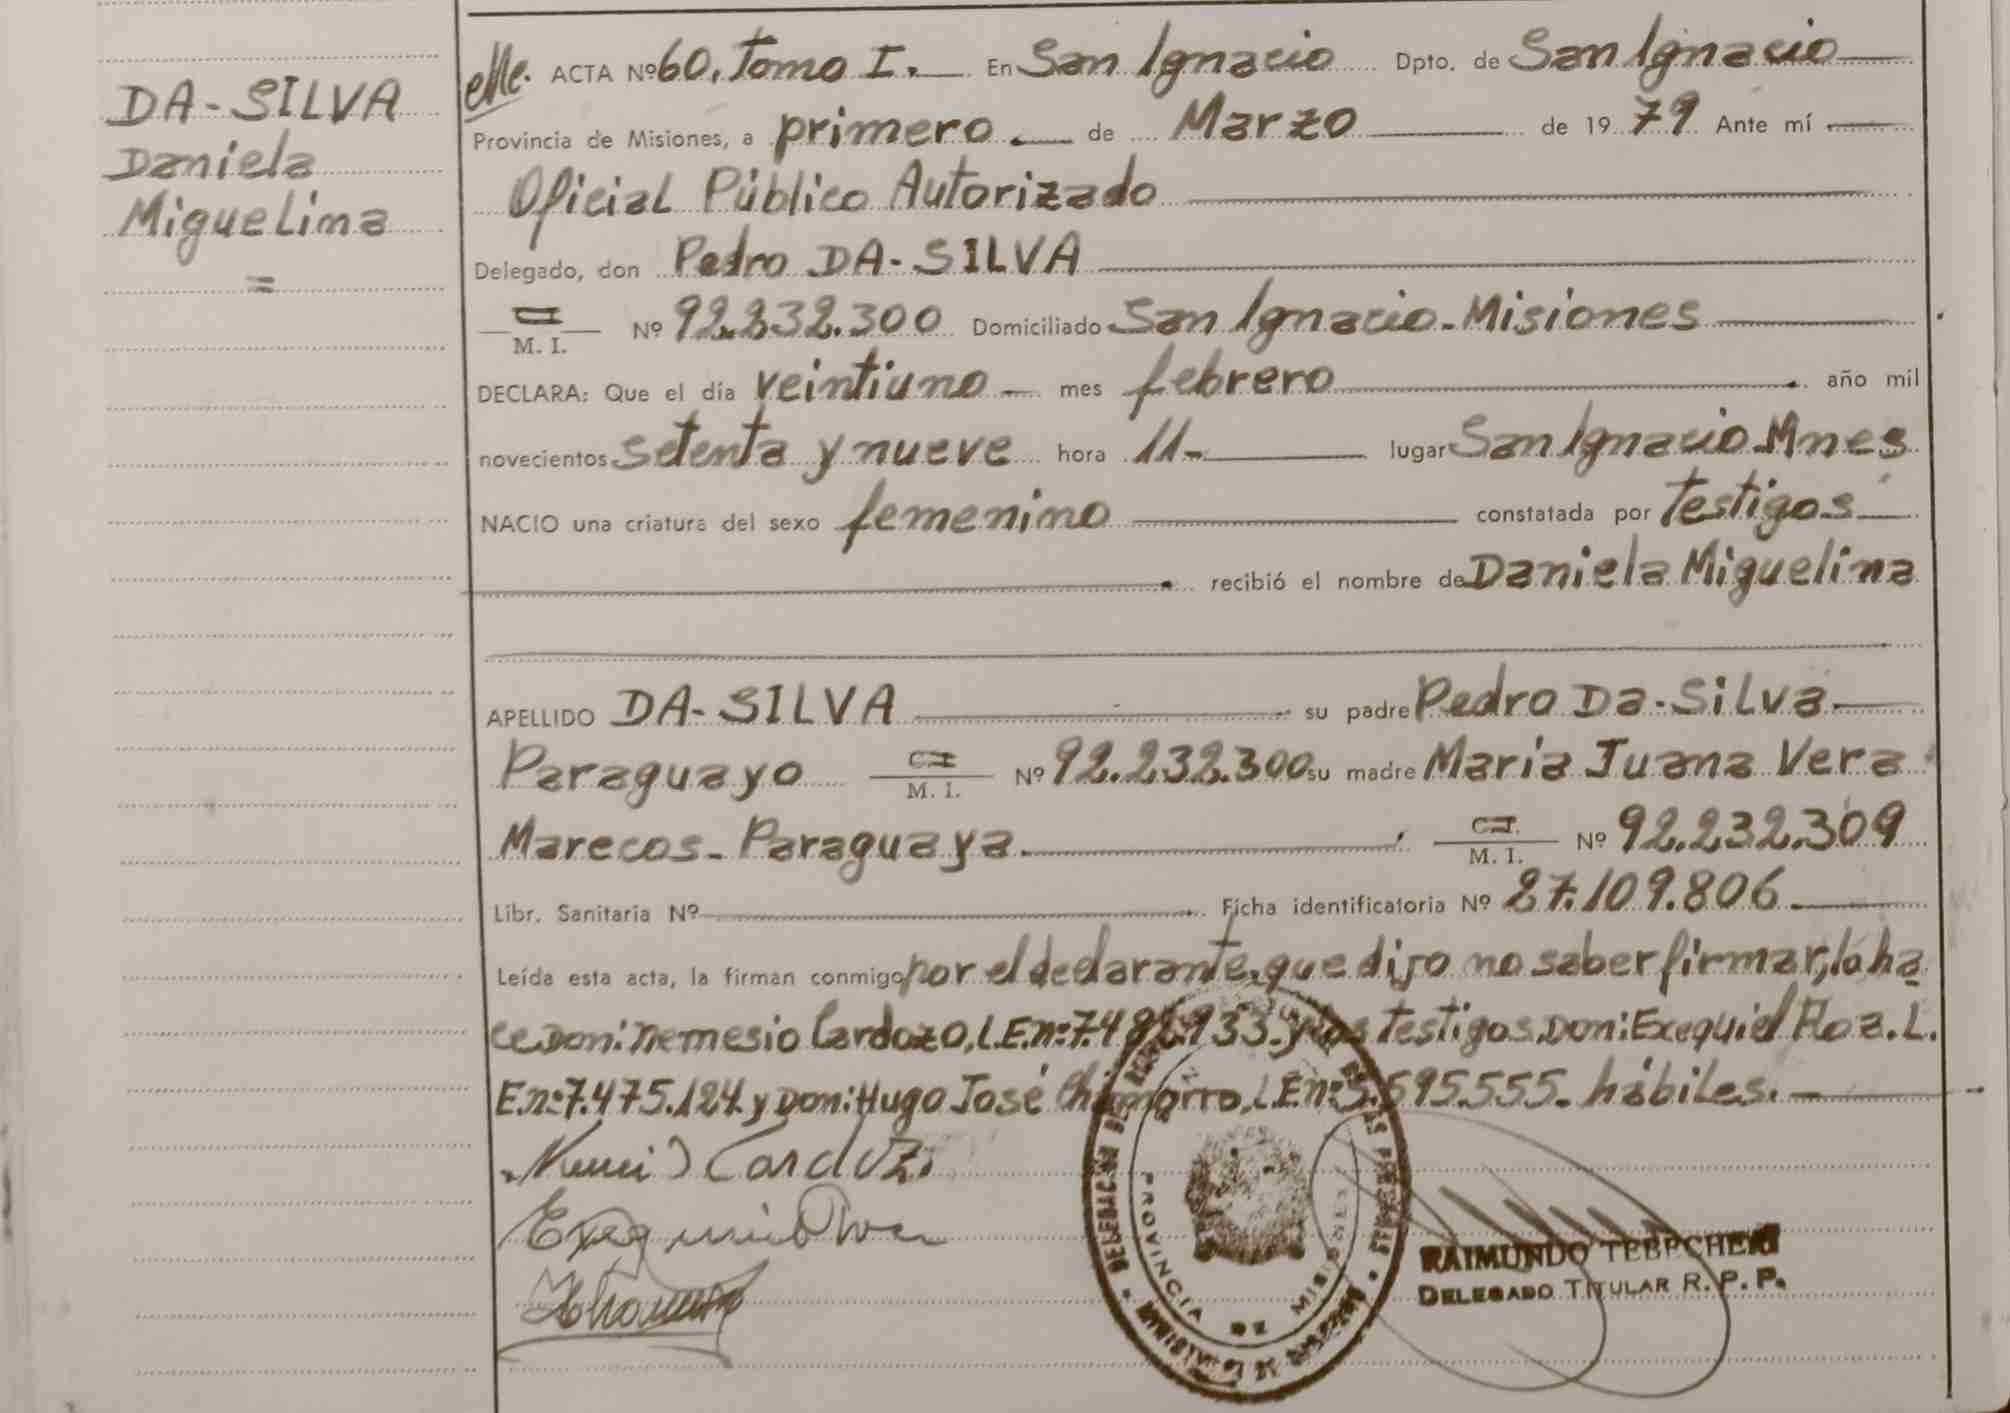 DA-SILVA
Daniela
Miguelina
=
ACTA Nº 60. Tomo I. En San Ignacio Dpto. de San Ignacio
Provincia de Misiones, a primero de Marzo de 19 79 Ante mí
Oficial Público Autorizado
Delegado, don Pedro DA-SILVA
C.I.
M. I. Nº 92.232.300 Domiciliado San Ignacio-Misiones
DECLARA: Que el día veintiuno mes febrero año mil
novecientos setenta y nueve hora 11- lugar San Ignacio-Mnes
NACIO una criatura del sexo femenino constatada por testigos
recibió el nombre de Daniela Miguelina
APELLIDO DA-SILVA su padre Pedro Da-Silva
Paraguayo C.I.
M. I. Nº 92.232.300 su madre María Juana Vera
Marecos-Paraguaya. C.I.
M. I. Nº 92.232.309
Libr. Sanitaria Nº Ficha identificatoria Nº 27.109.806
Leída esta acta, la firman conmigo por el declarante, que dijo no saber firmar, lo ha
ce Don: Nemesio Cardozo, L.E.nº: y los testigos, Don: Exequiel L.
E.nº 7.475.124 y Don: Hugo José L.E.nº 595.555. hábiles.
DELEGACION DE
PROVINCIA DE MISIONES
MINISTERIO DE GOBIERNO
RAIMUNDO
DELEGADO TITULAR R. P. P.